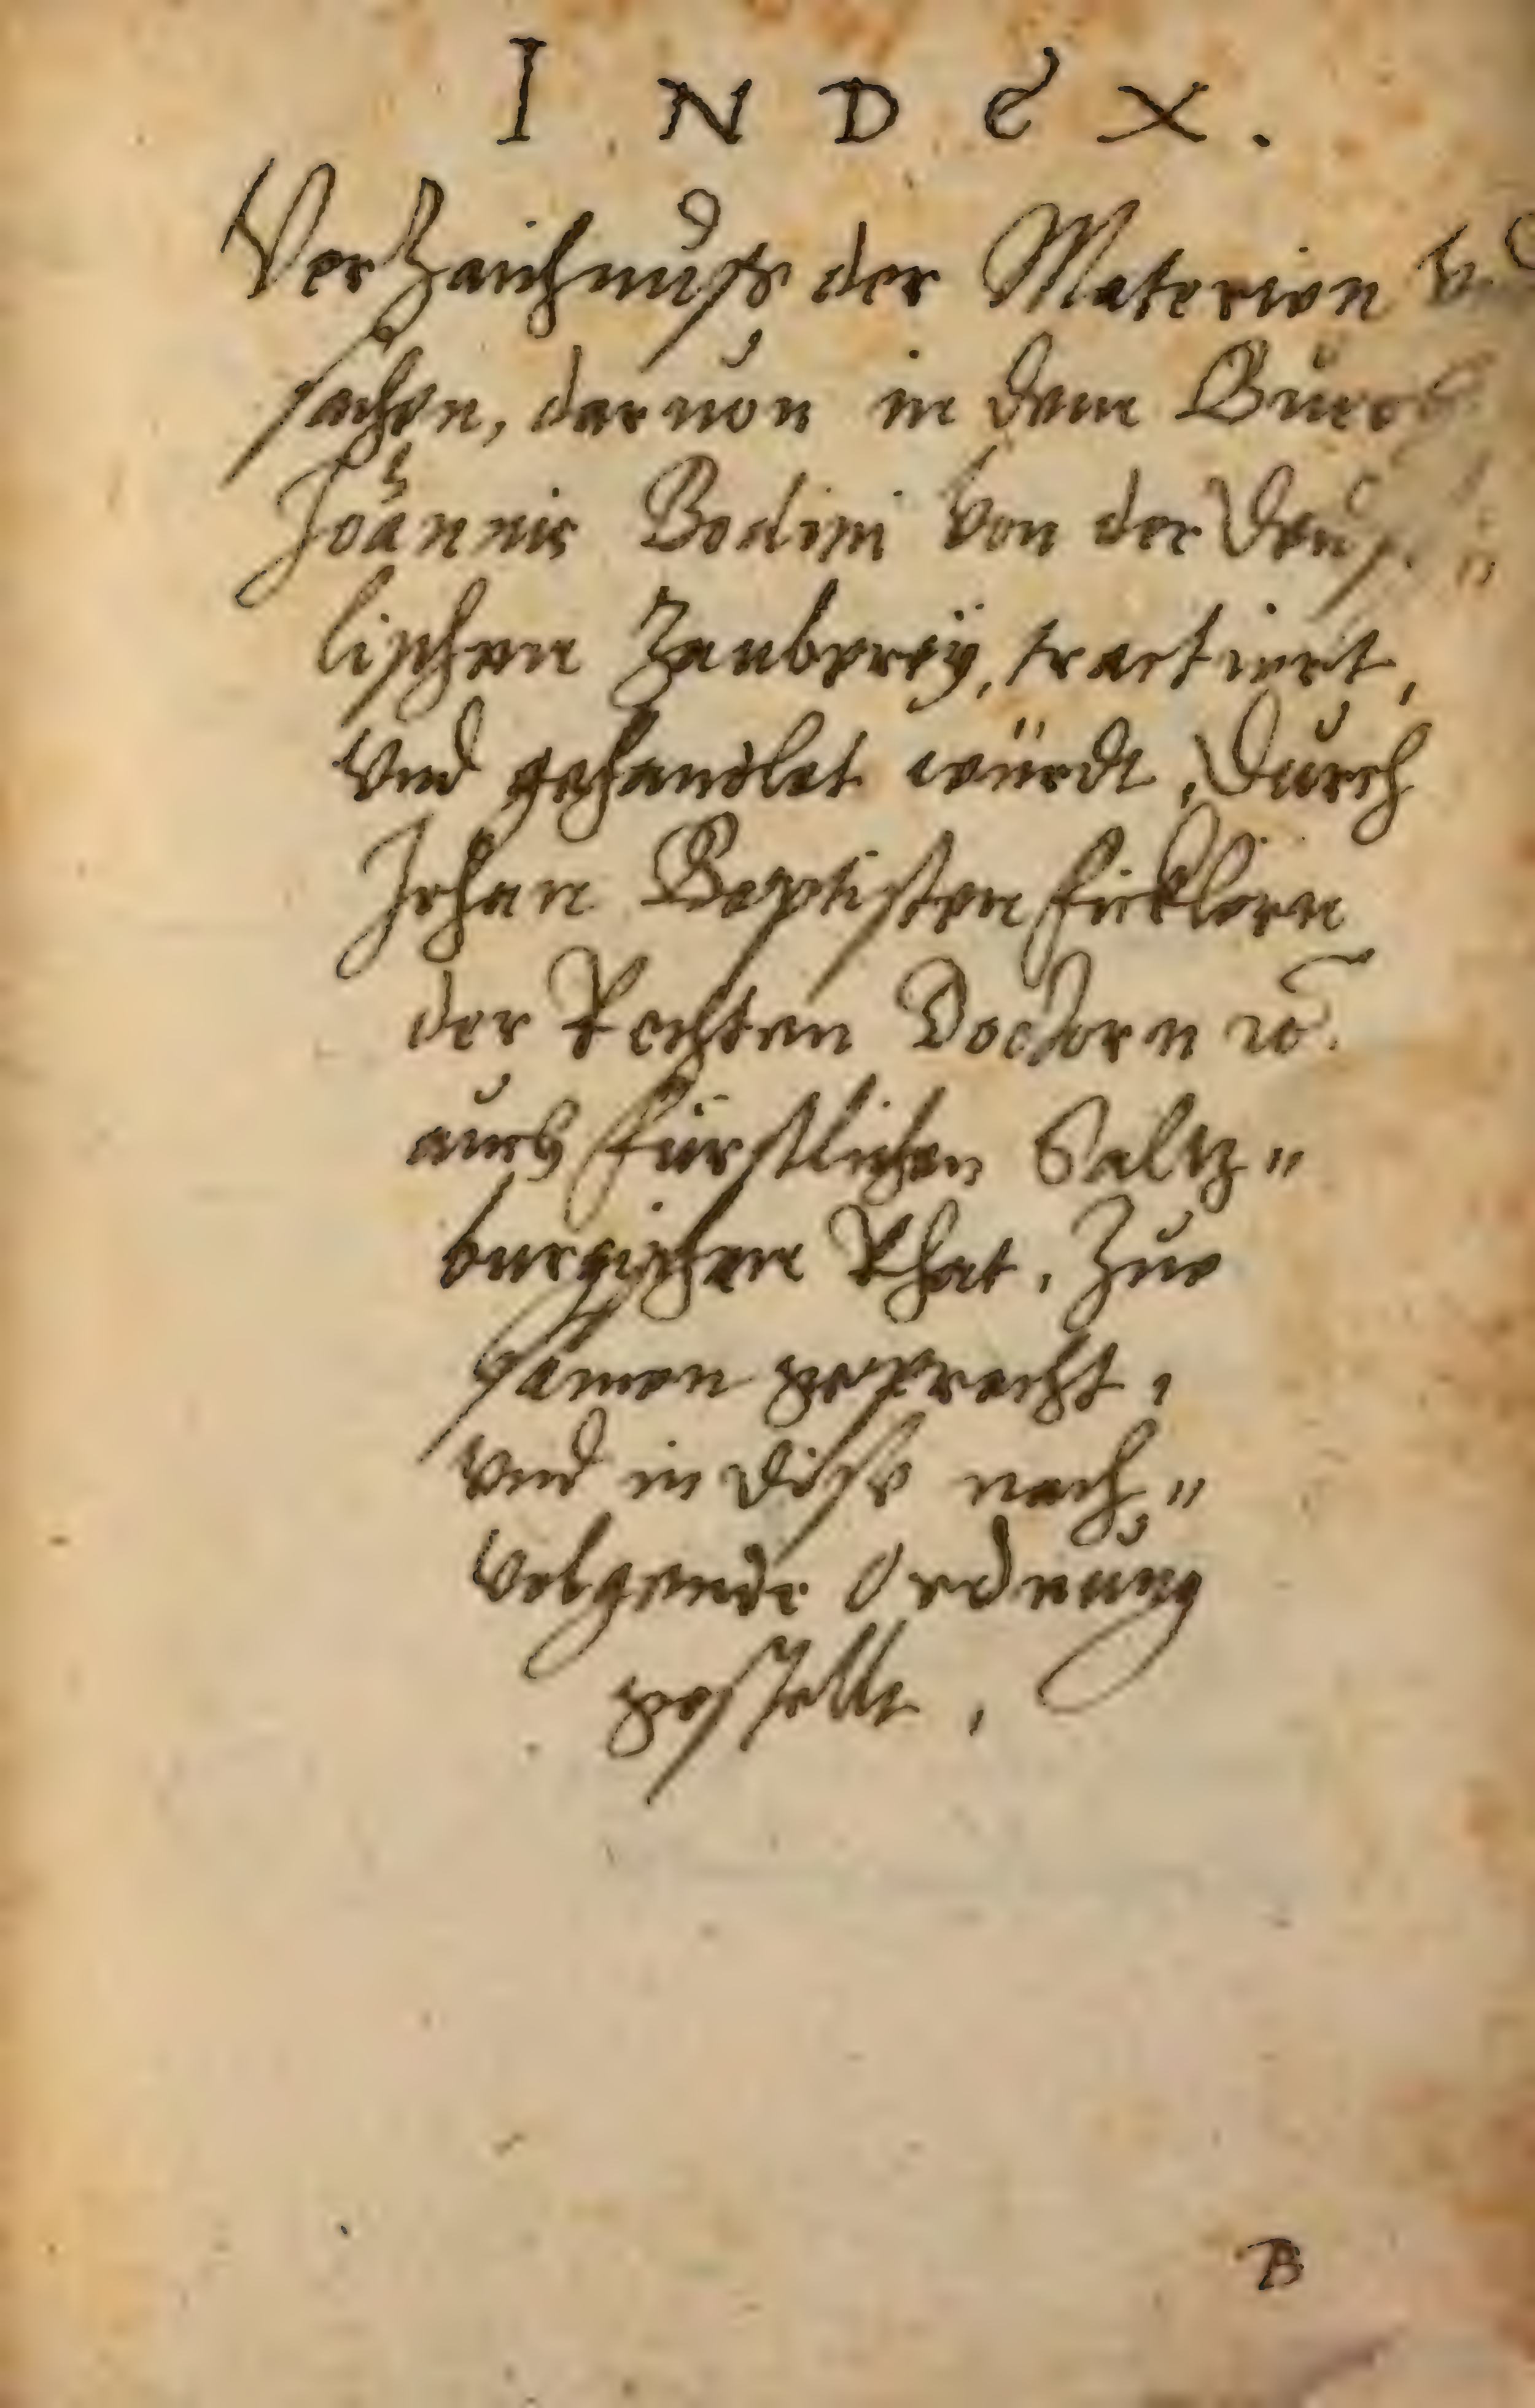 INDEX.
Verzaichnuß der Materien
sachen, daruon in dem Buech
Joannis Bodini von der
lischen Zauberey, tractiert,
vnd gehandlet würdt, Durch
Johan Baptisten Ficklern
der Rechten Doctorn ꝛc.
auch fürstlichen Saltz„
burgischen Rhat, Zue
samen gepracht,
vnd in dise nach„
volgende Ordnung
gestellt,
B